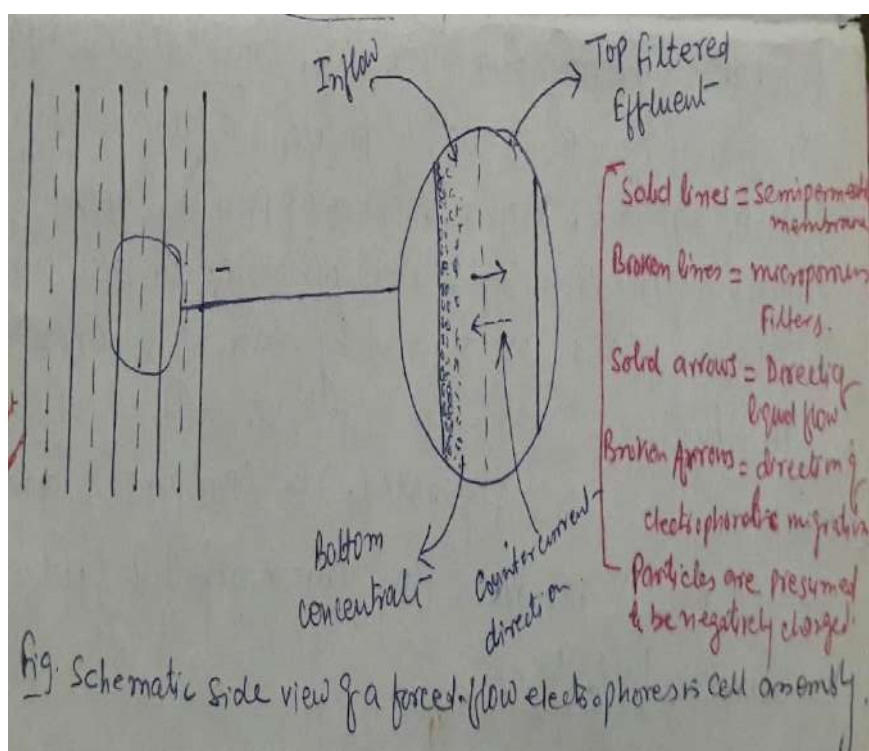 Inflow
Top filtered
Effluent
Solid lines = semipermeable
membrane
Broken lines = microporous
Filters.
Solid arrows = Direction of
liquid flow
Broken Arrows = direction of
electrophoretic migration
Particles are presumed
to be negatively charged.
-
Bottom
concentrate
Countercurrent
direction.
Fig. Schematic side view of a forced-flow electrophoresis cell assembly.